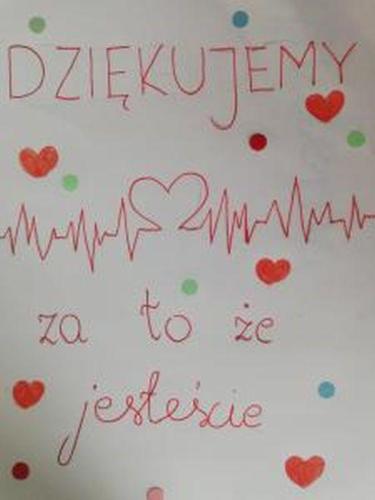 DZIĘKUJEMY
za to że
jesteście